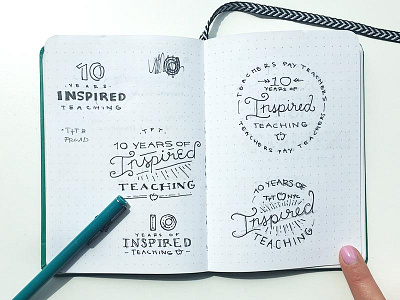 10
YEARS
INSPIRED
TEACHING
"TPT &
PROUD
TPT
10 YEARS OF
Inspired
TEACHING
10
YEARS OF
INSPIRED
TEACHING
TEACHERS PAY TEACHERS
10
YEARS OF
Inspired
TEACHING
TEACHERS PAY TEACHERS
10 YEARS OF
TPT NYC
Inspired
TEACHING